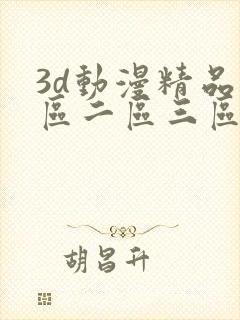 3d動漫精品
區二區三區
胡昌升